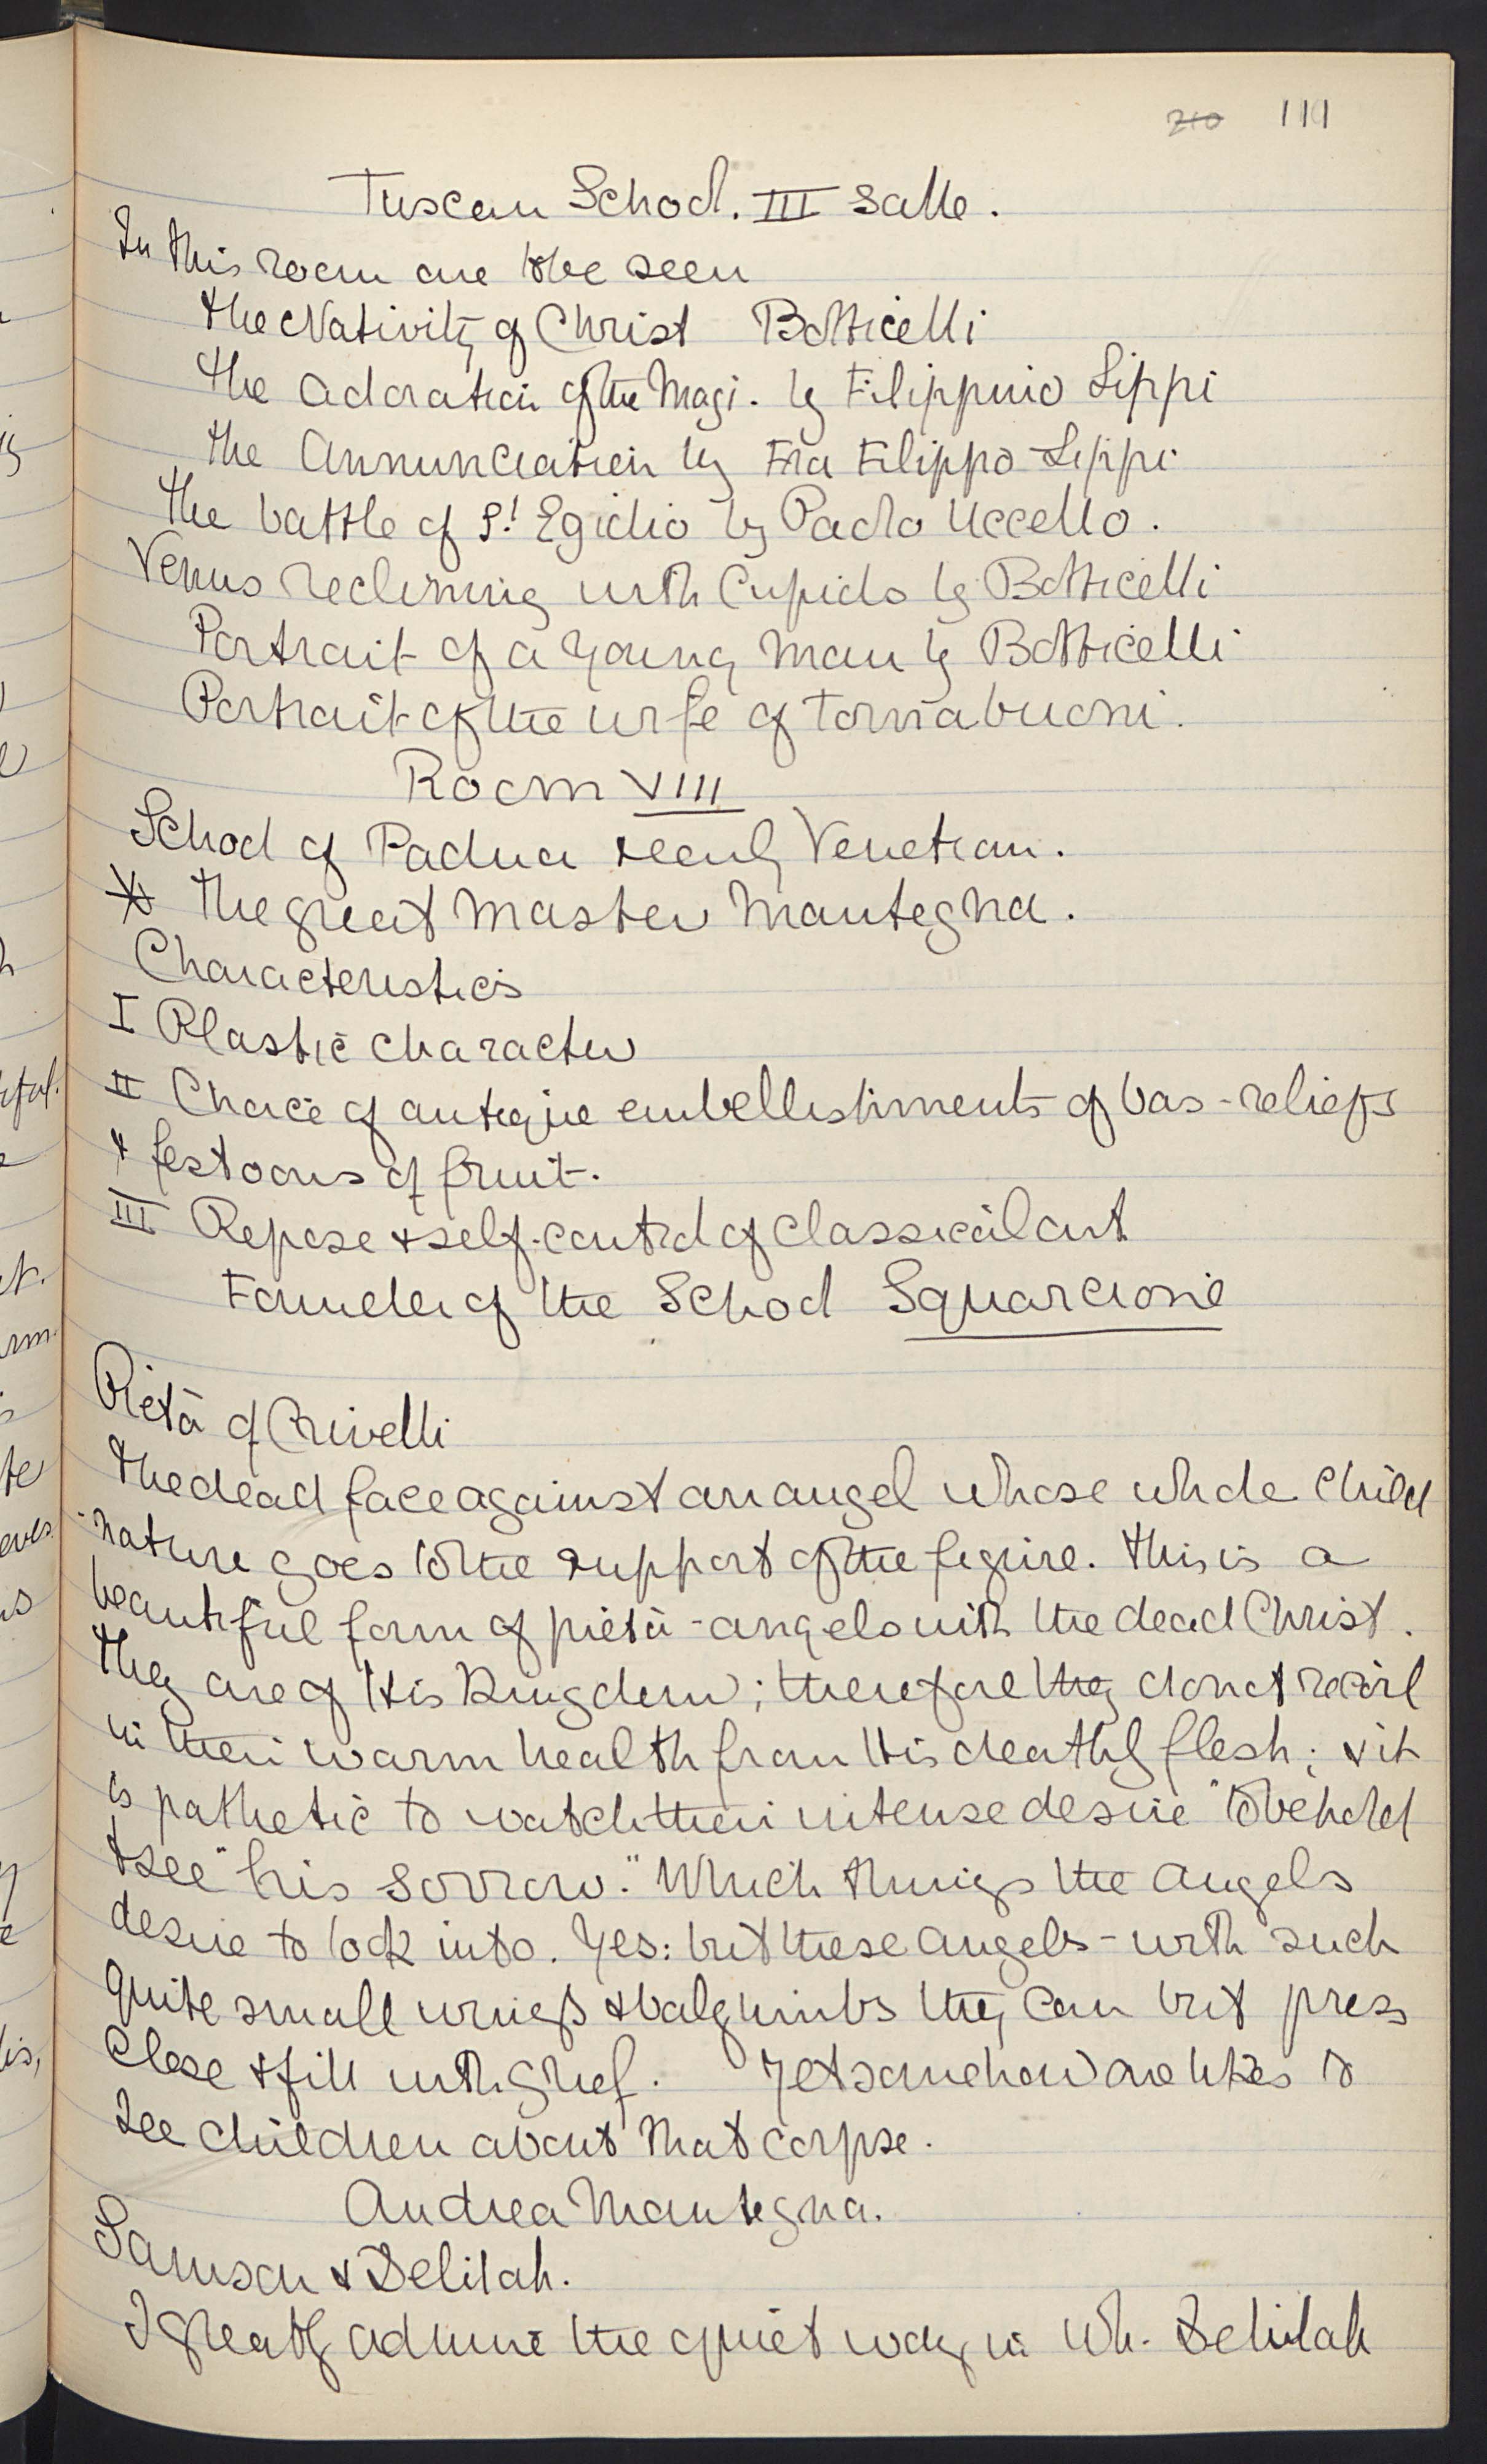 210 111
Tuscan School. III Salle.
In this room are to be seen
the Nativity of Christ Botticelli
the adoration of the Magi. by Filippino Lippi
the Annunciation by Fra Filippo Lippi
the battle of St Egidio by Paolo Uccello.
Venus reclining with Cupids by Botticelli
Portrait of a young man by Botticelli
Portrait of the wife of Tornabuoni.
Room VIII
School of Padua & early Venetian.
* the great master Mantegna.
Characteristics
I Plastic character
II Choice of antique embellishments of bas-reliefs
& festoons of fruit.
III Repose & self-control of classical art
Founder of the School Squarcione
Pietà of Crivelli
The dead face against an angel whose whole child
nature goes to the support of the figure. This is a
beautiful form of pietà - angels with the dead Christ.
They are of His Kingdom; therefore they do not recoil
in their warm health from His deathly flesh; & it
is pathetic to watch their intense desire "to behold
& see" his sorrow." Which things the angels
desire to look into. Yes: but these angels - with such
quite small wings & baby limbs they can but press
close & fill with grief. Yet somehow one likes to
see children about that corpse.
Andrea Mantegna.
Samson & Delilah.
I greatly admire the quiet way in wh. Delilah